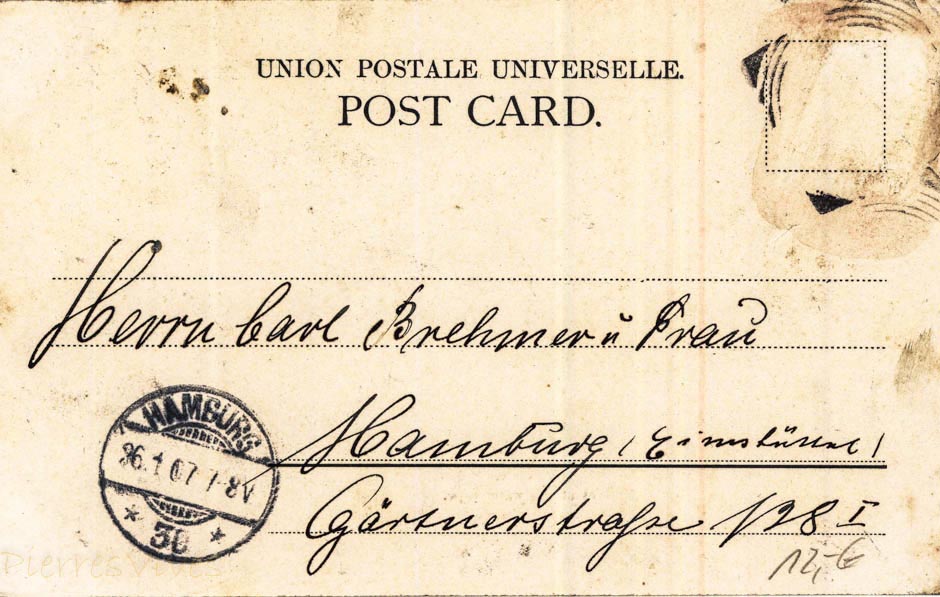 UNION POSTALE UNIVERSELLE.
POST CARD.
Herrn Carl Brehmer u Frau
Hamburg (Eimsbüttel)
Gärtnerstraße 128 I
HAMBURG
26.1.07 7-8V
* 30 *
12,-€
Pierres Vives